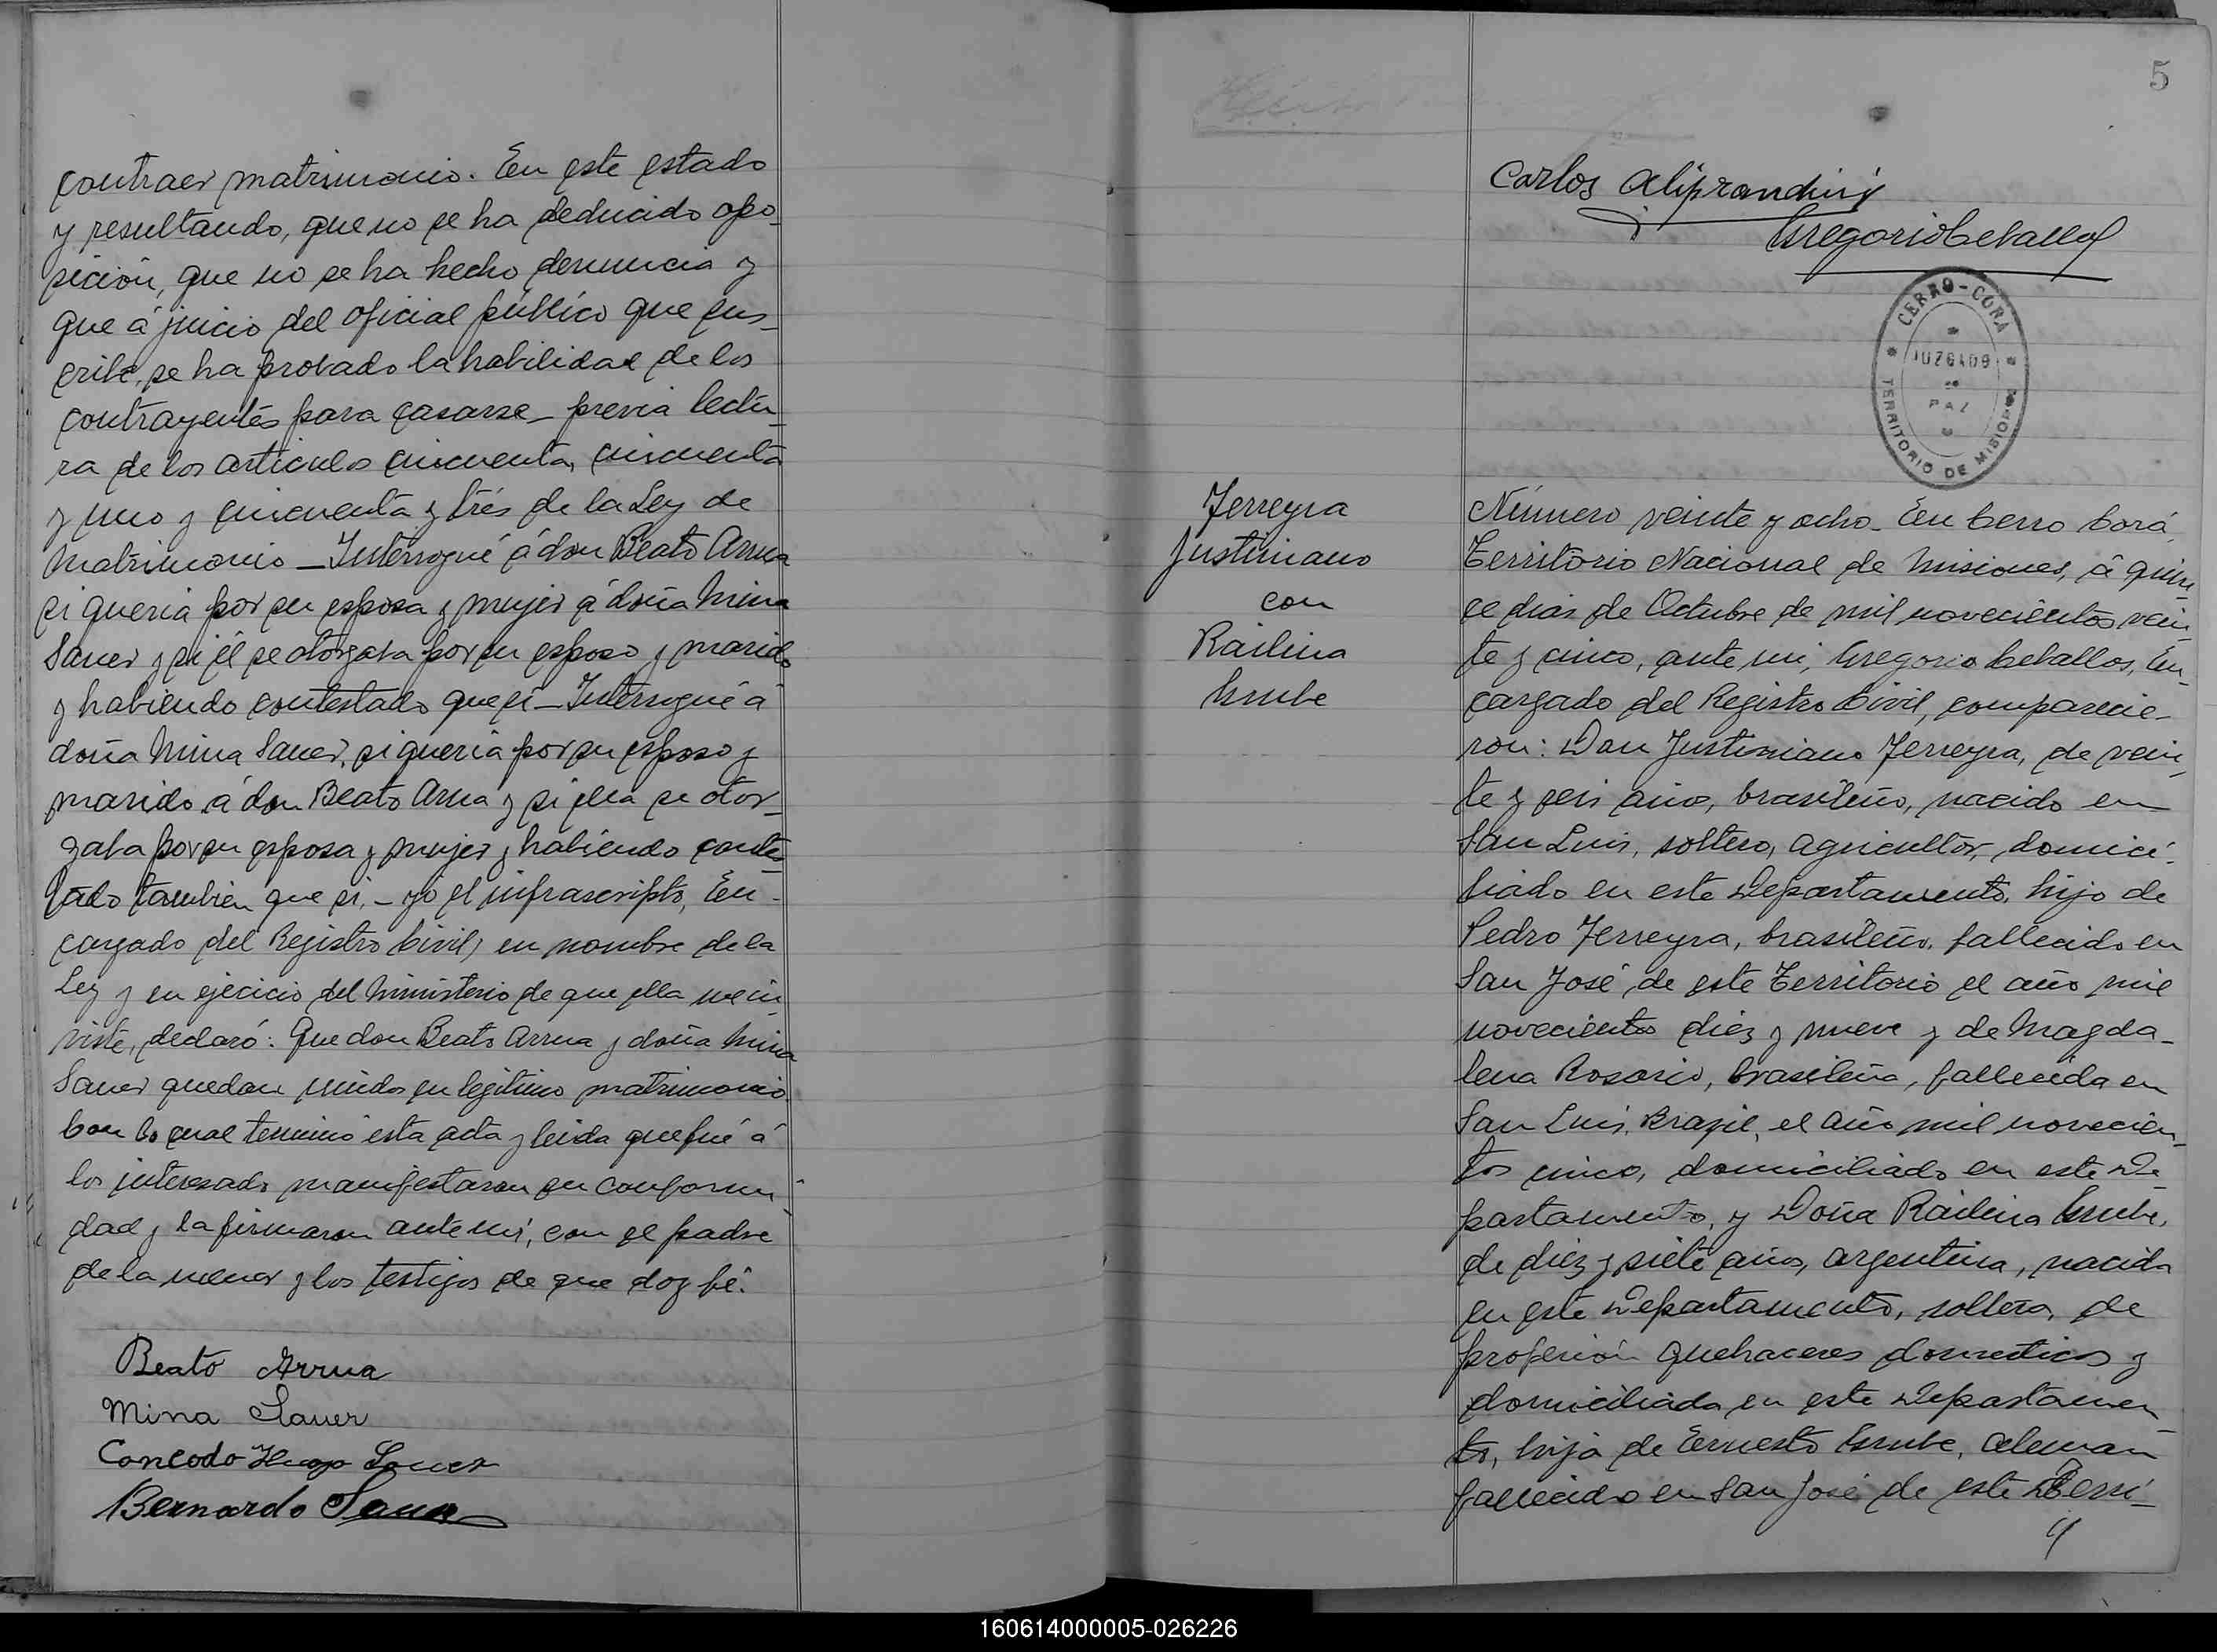 contraer matrimonio. En este estado
y resultando, que no se ha deducido opo-
sición, que no se ha hecho denuncia y
que á juicio del oficial público que sus-
cribe, se ha probado la habilidad de los
contrayentes para casarse - previa lectu-
ra de los articulos cincuenta, cincuenta
y uno y cincuenta y trés de la Ley de
Matrimonio - Interrogué á don Beato Arrua
si queria por su esposa y mujer á doña Mina
Sauer y si él se otorgaba por su esposo y marido
y habiendo contestado que si - Interrogué á
doña Mina Sauer, si queria por su esposo y
marido á don Beato Arrua y si ella se otor-
gaba por su esposa y mujer y habiendo contes-
tado tambien que si, - yo el infrascripto, En-
cargado del Registro Civil, en nombre de la
Ley y en ejercicio del Ministerio de que ella me in-
viste, declaró: Que don Beato Arrua y doña Mina
Sauer quedan unidos en legitimo matrimonio.
Con lo cual terminó esta acta y leida que fué á
los interesados manifestaron su conformi-
dad y la firmaron ante mi, con el padre
de la menor y los testigos de que doy fé.
Beato Arrua
Mina Sauer
Concodo Hugo Sauer
Bernardo Sauer
5
Carlos Aliprandini
Gregorio Cevallos
CERRO-CORA
JUZGADO
DE
PAZ
TERRITORIO DE MISIONES
Ferreyra
Justiniano
con
Railina
Grube
Número veinte y ocho - En Cerro Corá
Territorio Nacional de Misiones, á quin-
ce dias de Octubre de mil novecientos vein-
te y cinco, ante mi, Gregorio Ceballos, En-
cargado del Registro Civil, comparecie-
ron: Don Justiniano Ferreyra, de vein-
te y seis años, brasileño, nacido en
San Luis, soltero, agricultor, domici-
liado en este Departamento, hijo de
Pedro Ferreyra, brasileño, fallecido en
San José de este Territorio el año mil
novecientos diez y nueve y de Magda-
lena Rosario, brasileña, fallecida en
San Luis, Brazil, el año mil novecien-
tos cinco, domiciliado en este De-
partamento, y Doña Railina Grube,
de diez y siete años, argentina, nacida
en este Departamento, soltera, de
profesión quehaceres domesticos y
domiciliada en este Departamen-
to, hija de Ernesto Grube, aleman
fallecido en San José de este Terri-
160614000005-026226